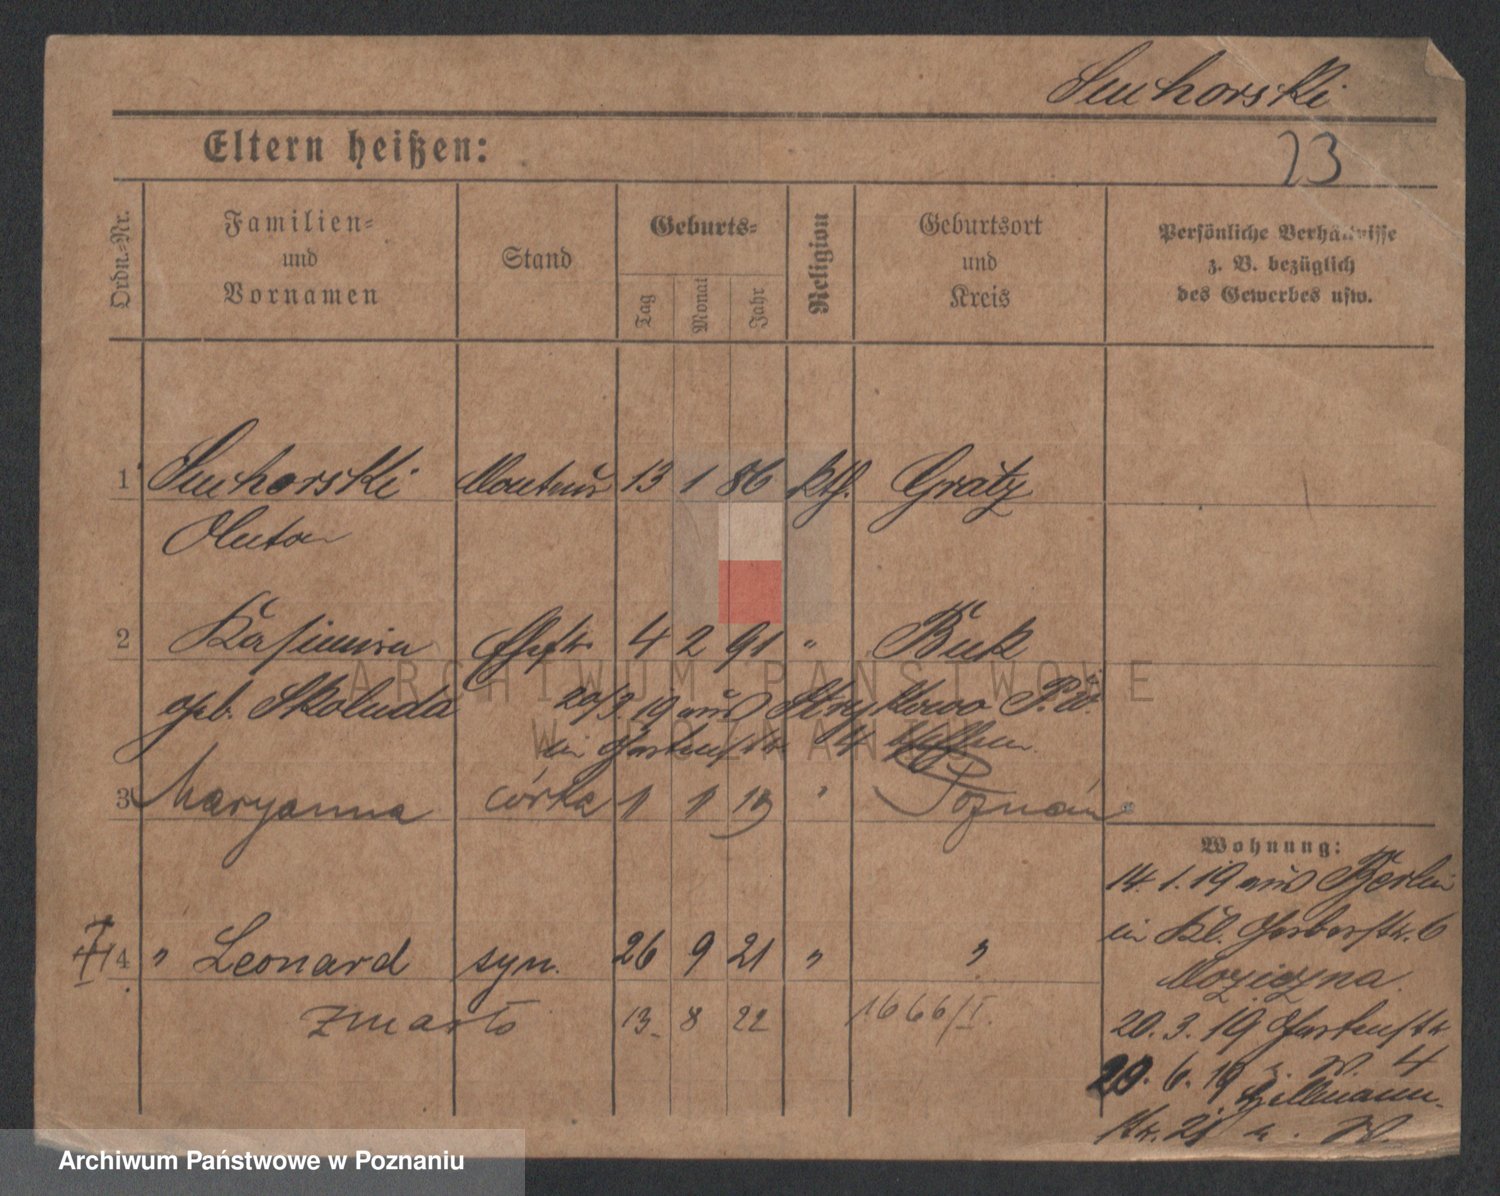 Suchorski
Eltern heißen: 23
Ordn.-Nr.
Familien-
und
Vornamen
Stand
Geburts-
Tag
Monat
Jahr
Religion
Geburtsort
und
Kreis
Persönliche Verhältnisse
z. B. bezüglich
des Gewerbes usw.
1 Suchorski Monteur 13 1 86 kth. Grätz
Anton
2 Kasimira Ehefr. 4 2 91 " Buk
geb. Skoluda 20/3. 19 aus Strykowo P. W.
in Gartenstr. 4
3 Maryanna córka 1 1 13 " Poznań
Wohnung:
14. 1. 19 aus Berlin
in Kl. Gerberstr. 6
4 " Leonard syn. 26 9 21 " "
zmarło 13. 8 22 1666/I.
20. 3. 19 Gartenstr.
20. 6. 19 z. W. 4
str. 21
ARCHIWUM PAŃSTWOWE
W POZNANIU
Archiwum Państwowe w Poznaniu